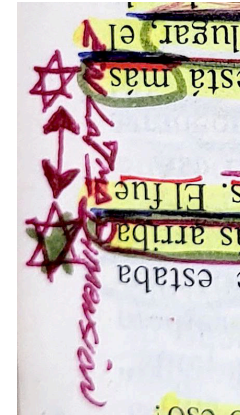 eso
estaba
as arriba
s. El fue
está más
lugar, el
Dimensión